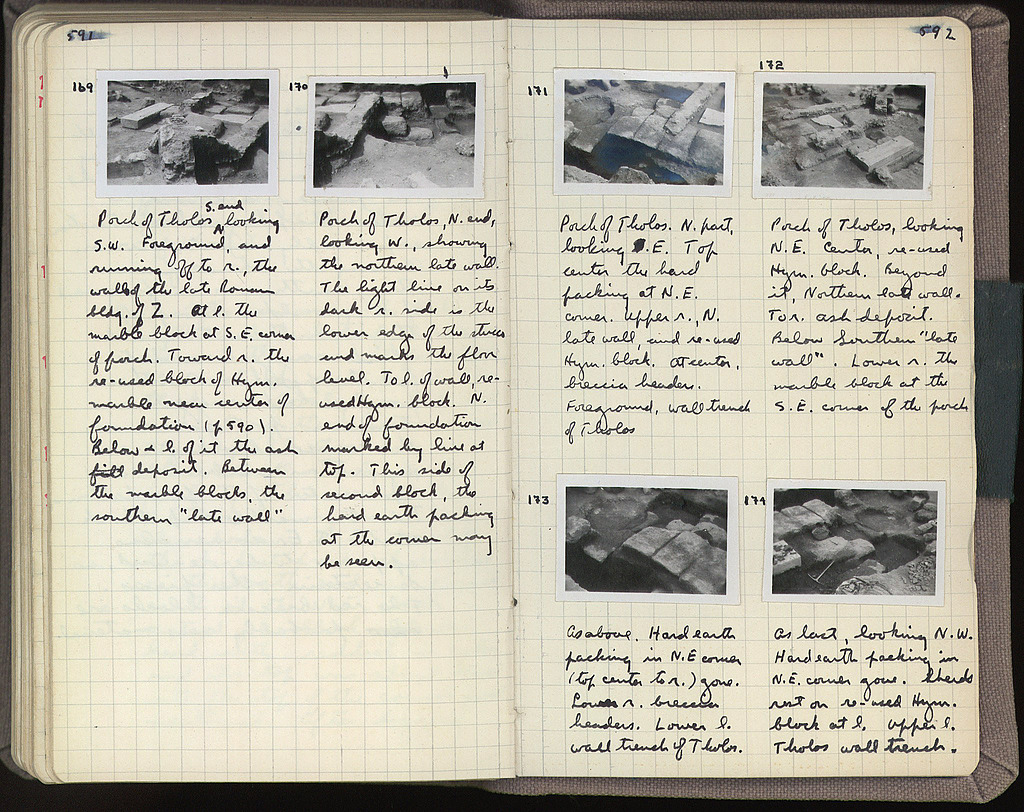 591
169
Porch of Tholos, S. end looking
S.W. Foreground, and
running off to r., the
walls of the late Roman
bldg. of Z. At l. the
marble block at S.E. corner
of porch. Toward r. the
re-used block of Hym.
marble near center of
foundation (p590).
Below & l. of it the ash
fill deposit. Between
the marble blocks, the
southern "late wall"
170
Porch of Tholos, N. end,
looking W., showing
the northern late wall.
The light line on its
dark r. side is the
lower edge of the stucco
and marks the floor
level. To l. of wall, re-
used Hym. block. N.
end of foundation
marked by line at
top. This side of
second block, the
hard earth packing
at the corner may
be seen.
592
171
Porch of Tholos. N. part,
looking E. Top
center the hard
packing at N.E.
corner. Upper r., N.
late wall, and re-used
Hym. block. At center,
breccia headers.
Foreground, wall trench
of Tholos
172
Porch of Tholos, looking
N.E. Center, re-used
Hym. block. Beyond
it, Northern late wall.
To r. ash deposit.
Below Southern "late
wall". Lower r. the
marble block at the
S.E. corner of the porch
173
As above. Hard earth
packing in N.E corner
(top center to r.) gone.
Lower r. breccia
headers. Lower l.
wall trench of Tholos.
174
As last, looking N.W.
Hard earth packing in
N.E. corner gone. Sherds
rest on re-used Hym.
block at l. Upper l.
Tholos wall trench.